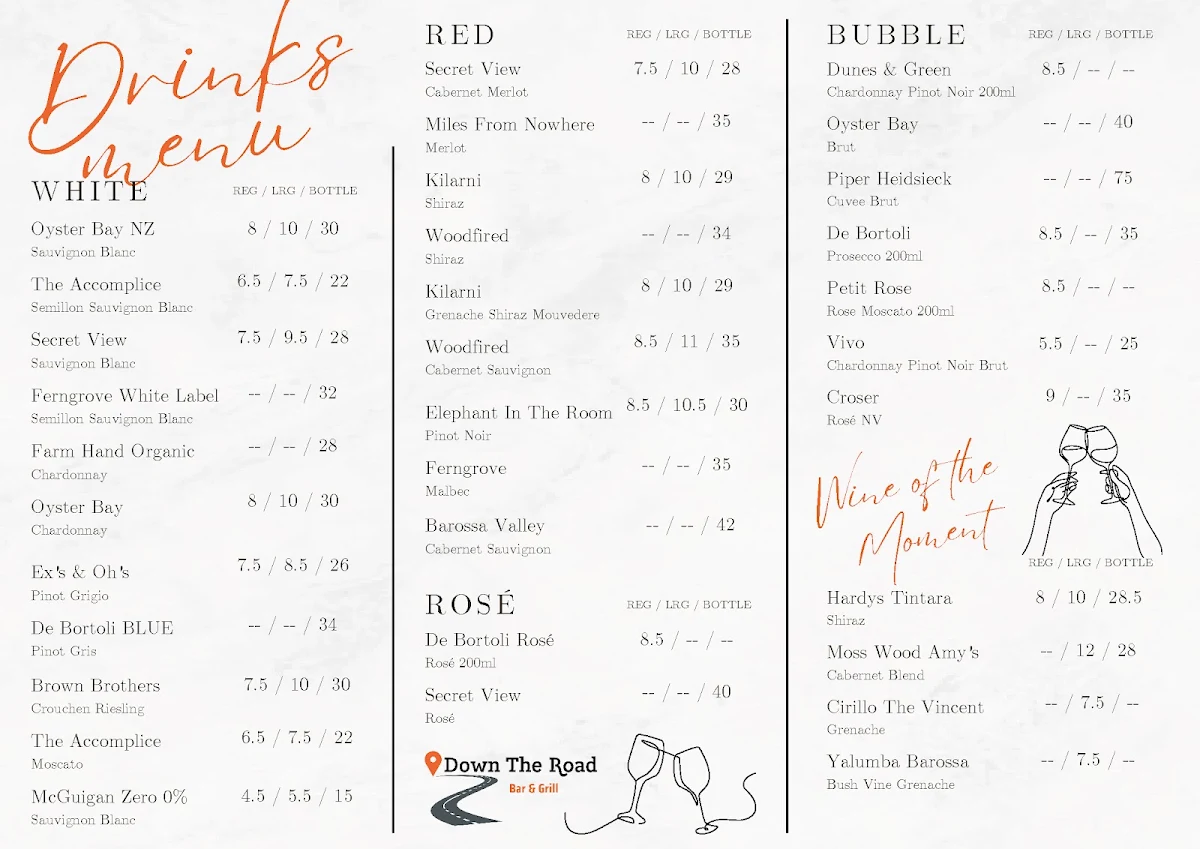 Drinks
menu
WHITE REG / LRG / BOTTLE
Oyster Bay NZ 8 / 10 / 30
Sauvignon Blanc
The Accomplice 6.5 / 7.5 / 22
Semillon Sauvignon Blanc
Secret View 7.5 / 9.5 / 28
Sauvignon Blanc
Ferngrove White Label -- / -- / 32
Semillon Sauvignon Blanc
Farm Hand Organic -- / -- / 28
Chardonnay
Oyster Bay 8 / 10 / 30
Chardonnay
Ex's & Oh's 7.5 / 8.5 / 26
Pinot Grigio
De Bortoli BLUE -- / -- / 34
Pinot Gris
Brown Brothers 7.5 / 10 / 30
Crouchen Riesling
The Accomplice 6.5 / 7.5 / 22
Moscato
McGuigan Zero 0% 4.5 / 5.5 / 15
Sauvignon Blanc
RED REG / LRG / BOTTLE
Secret View 7.5 / 10 / 28
Cabernet Merlot
Miles From Nowhere -- / -- / 35
Merlot
Kilarni 8 / 10 / 29
Shiraz
Woodfired -- / -- / 34
Shiraz
Kilarni 8 / 10 / 29
Grenache Shiraz Mouvedere
Woodfired 8.5 / 11 / 35
Cabernet Sauvignon
Elephant In The Room 8.5 / 10.5 / 30
Pinot Noir
Ferngrove -- / -- / 35
Malbec
Barossa Valley -- / -- / 42
Cabernet Sauvignon
ROSÉ REG / LRG / BOTTLE
De Bortoli Rosé 8.5 / -- / --
Rosé 200ml
Secret View -- / -- / 40
Rosé
Down The Road
Bar & Grill
BUBBLE REG / LRG / BOTTLE
Dunes & Green 8.5 / -- / --
Chardonnay Pinot Noir 200ml
Oyster Bay -- / -- / 40
Brut
Piper Heidsieck -- / -- / 75
Cuvee Brut
De Bortoli 8.5 / -- / 35
Prosecco 200ml
Petit Rose 8.5 / -- / --
Rose Moscato 200ml
Vivo 5.5 / -- / 25
Chardonnay Pinot Noir Brut
Croser 9 / -- / 35
Rosé NV
Wine of the
Moment
REG / LRG / BOTTLE
Hardys Tintara 8 / 10 / 28.5
Shiraz
Moss Wood Amy's -- / 12 / 28
Cabernet Blend
Cirillo The Vincent -- / 7.5 / --
Grenache
Yalumba Barossa -- / 7.5 / --
Bush Vine Grenache